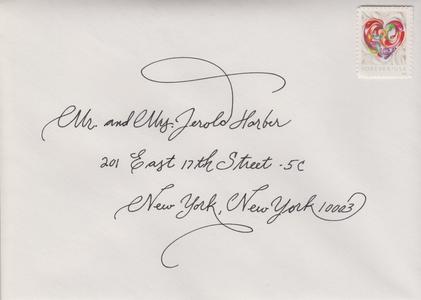 FOREVER USA
Mr. and Mrs. Jerold Harber
201 East 17th Street - 5C
New York, New York 10003